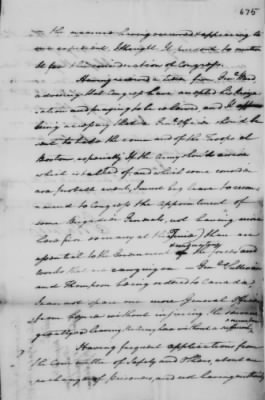 675
the measure having occurred & appearing to
me expedient, I thought it prudent to mention
it for the consideration of Congress.
Having received a Letter from Genl Ward
advising that Congress have accepted his resig
nation and praying to be relieved, and it
being necessary that a Genl Officer should be
sent to take the command of the Troops at
Boston, especially if the Army should arrive
which is talked of and which some consider
as a probable event, I must beg leave to recom
mend to Congress the appointment of
some Brigadier Generals, not having more
here (nor so many at this Time) than are
essential to the Government of the forces and
works that are carrying on – Genl Sullivan
and Thompson being ordered to Canada
I can not spare one more General Officer
from hence without injuring the service
greatly & leaving the Army here without a sufficient
Having frequent applications from
the Committee of Safety and others, about an
exchange of prisoners, and not having authority